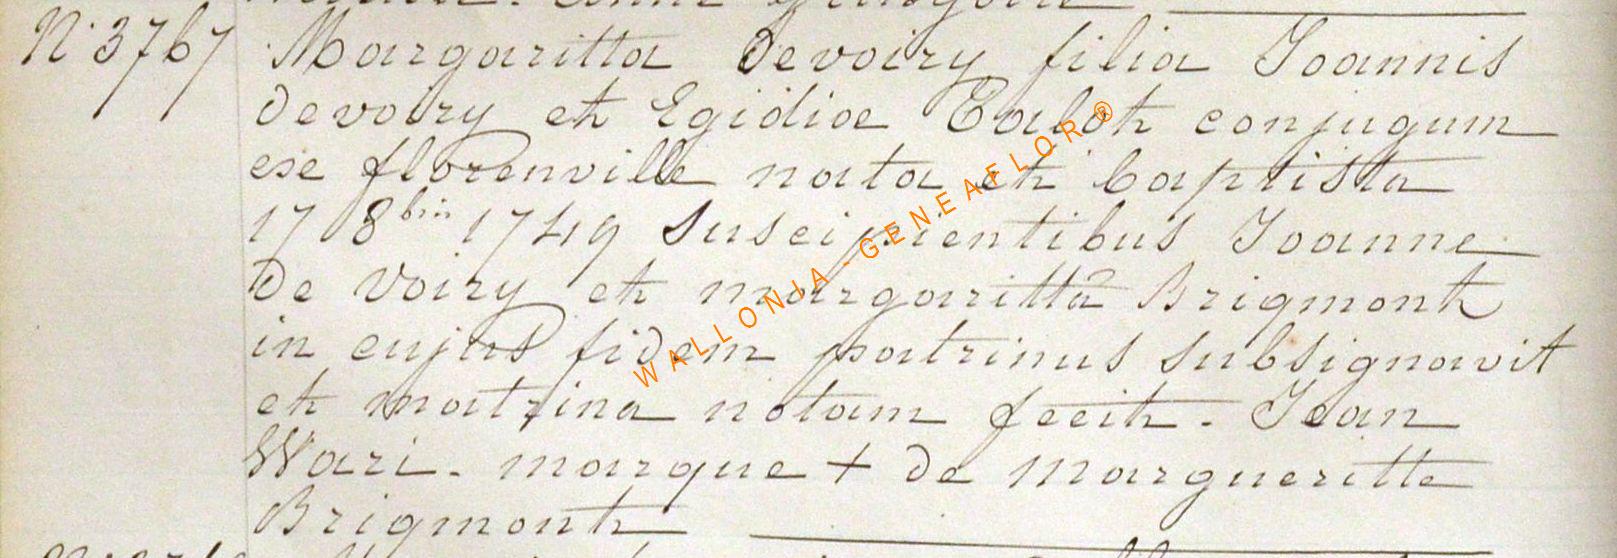 N° 3767 Margaritta Devoiry filia Joannis
devoiry et Egidiæ Talot conjugum
ex florenville nata et baptista
17 8bris 1749 suscipientibus Joanne
De Voiry et margaritta Brigmont
in cujus fidem patrinus subsignavit
et matrina notam fecit. Jean
Wari. marque + de Margueritte
Brigmont
WALLONIA-GENEAFLOR®